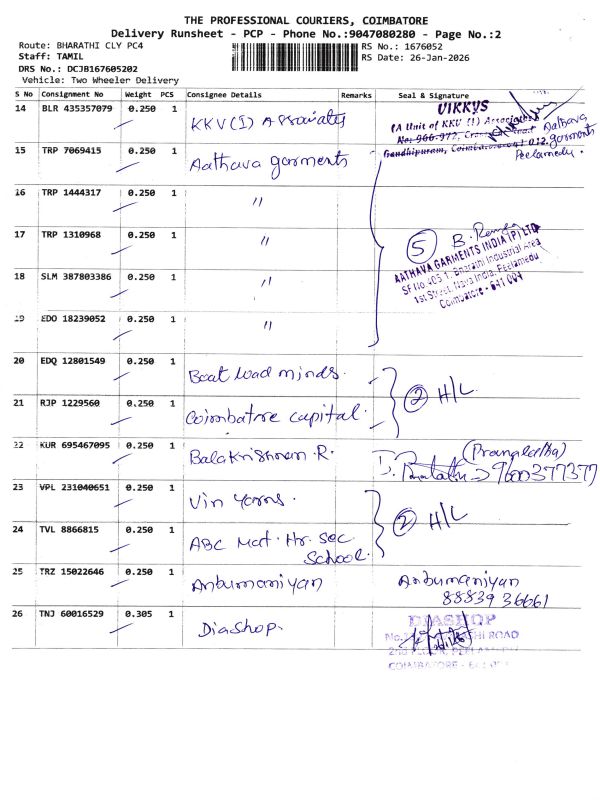 THE PROFESSIONAL COURIERS, COIMBATORE
Delivery Runsheet - PCP - Phone No.:9047080280 - Page No.:2
Route: BHARATHI CLY PC4 RS No.: 1676052
Staff: TAMIL RS Date: 26-Jan-2026
DRS No.: DCJB167605202
Vehicle: Two Wheeler Delivery
S No Consignment No Weight PCS Consignee Details Remarks Seal & Signature
14 BLR 435357079 0.250 1 KKV(I) Associates
VIKKYS
(A Unit of KKV (I) Associates)
Gandhipuram, Coimbatore-641 012.
Aathava
garments
Peelamedu.
15 TRP 7069415 0.250 1 Aathava garments
16 TRP 1444317 0.250 1 "
17 TRP 1310968 0.250 1 "
5 B.
AATHAVA GARMENTS INDIA (P) LTD
SF No 405 1, Bharathi Industrial Area
1st Street, Nava India, Peelamedu
Coimbatore - 641 004
18 SLM 387803386 0.250 1 "
19 EDO 18239052 0.250 1 "
20 EDQ 12801549 0.250 1 Boat load minds.
2 H/L
21 RJP 1229560 0.250 1 Coimbatore capital.
22 KUR 695467095 0.250 1 Balakrishnan. R.
(Pranglatha)
9600377377
23 VPL 231040651 0.250 1 Vin Yarns.
2 H/L
24 TVL 8866815 0.250 1 ABC Mat. Hr. Sec
School.
25 TRZ 15022646 0.250 1 Anbumaniyan Anbumaniyan
88839 36661
26 TNJ 60016529 0.305 1 DiaShop.
DIASHOP
ROAD
2nd FLOOR,
COIMBATORE